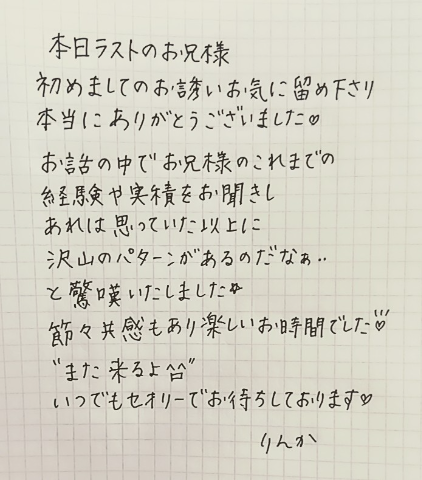 本日ラストのお兄様
初めましてのお誘いお気に留め下さり
本当にありがとうございました♡
お話の中でお兄様のこれまでの
経験や実積をお聞きし
あれは思っていた以上に
沢山のパターンがあるのだなぁ..
と驚嘆いたしました☆
節々共感もあり楽しいお時間でした♡
"また来るよ^^"
いつでもセオリーでお待ちしております♡
りんか